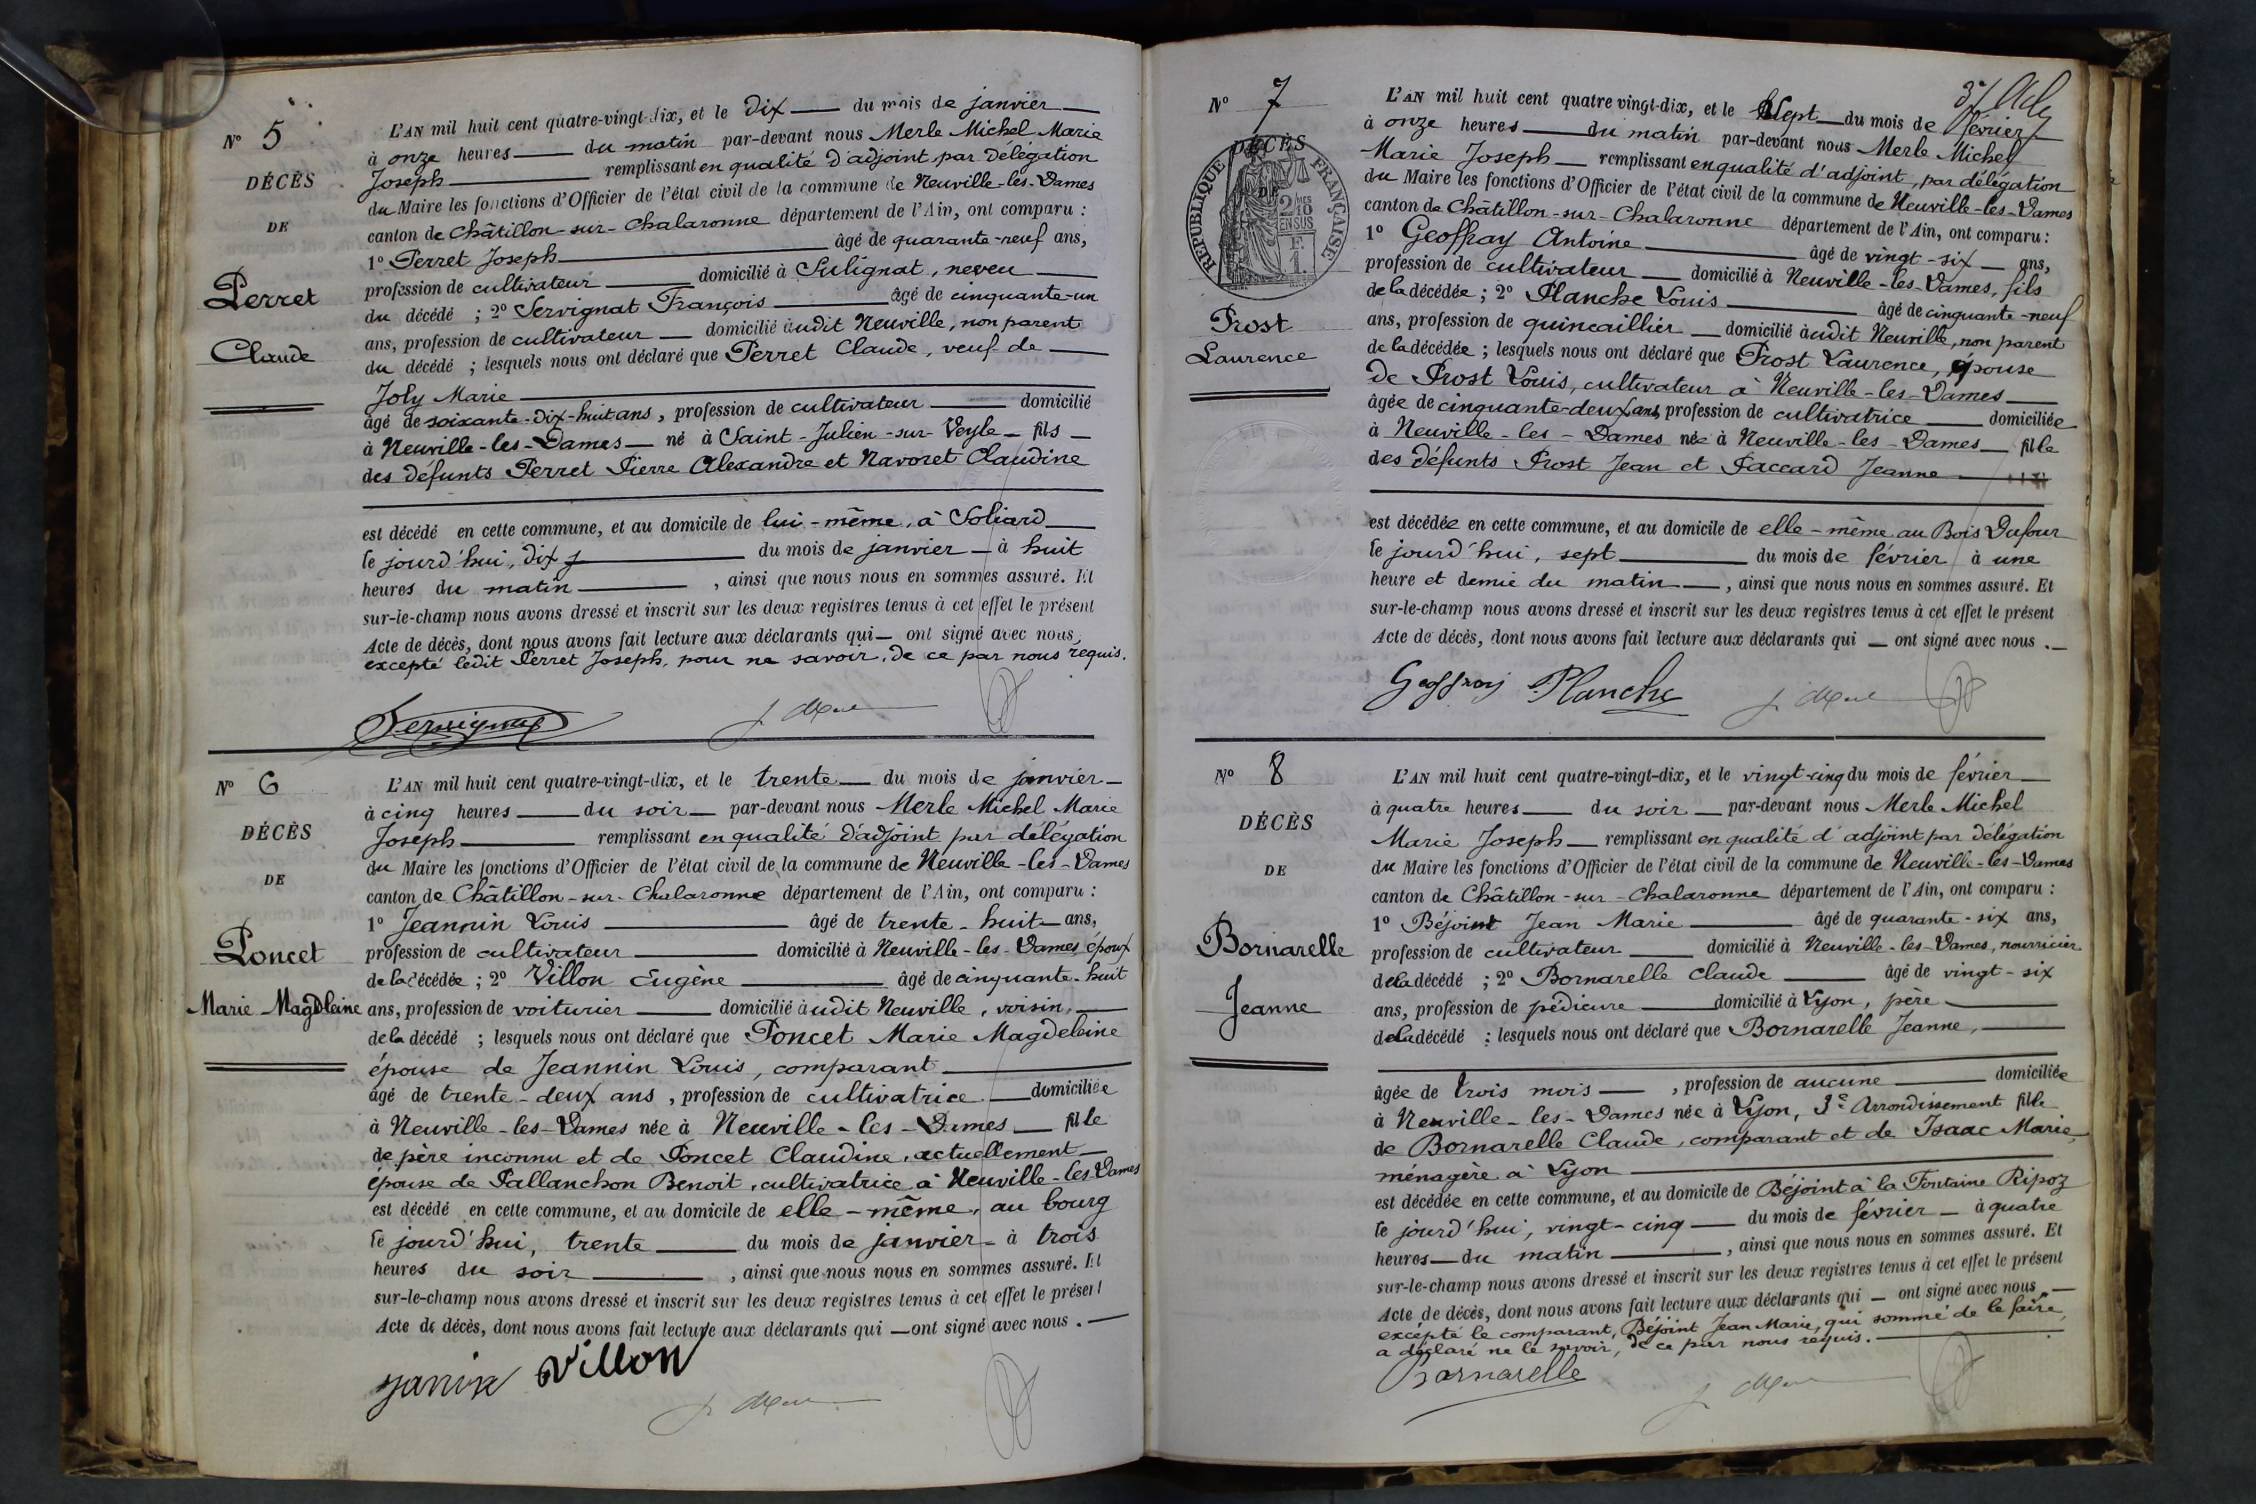 N° 5
DÉCÈS
DE
Perret
Claude
L'AN mil huit cent quatre-vingt-dix, et le dix du mois de janvier
à onze heures du matin par-devant nous Merle Michel Marie
Joseph remplissant en qualité d'adjoint par délégation
du Maire les fonctions d'Officier de l'état civil de la commune de Neuville-les-Dames
canton de Châtillon-sur-Chalaronne département de l'Ain, ont comparu :
1° Perret Joseph âgé de quarante-neuf ans,
profession de cultivateur domicilié à Sulignat, neveu
du décédé ; 2° Servignat François âgé de cinquante-un
ans, profession de cultivateur domicilié audit Neuville, non parent
du décédé ; lesquels nous ont déclaré que Perret Claude, veuf de
Joly Marie
âgé de soixante-dix-huit ans, profession de cultivateur domicilié
à Neuville-les-Dames né à Saint-Julien-sur-Veyle fils
des défunts Perret Pierre Alexandre et Navoret Claudine
est décédé en cette commune, et au domicile de lui-même, à Soliard
le jourd'hui, dix du mois de janvier à huit
heures du matin, ainsi que nous nous en sommes assuré. Et
sur-le-champ nous avons dressé et inscrit sur les deux registres tenus à cet effet le présent
Acte de décès, dont nous avons fait lecture aux déclarants qui ont signé avec nous,
excepté ledit Perret Joseph, pour ne savoir, de ce par nous requis.
Servignat J. Merle
N° 6
DÉCÈS
DE
Poncet
Marie Magdleine
L'AN mil huit cent quatre-vingt-dix, et le trente du mois de janvier
à cinq heures du soir par-devant nous Merle Michel Marie
Joseph remplissant en qualité d'adjoint par délégation
du Maire les fonctions d'Officier de l'état civil de la commune de Neuville-les-Dames
canton de Châtillon-sur-Chalaronne département de l'Ain, ont comparu :
1° Jeannin Louis âgé de trente-huit ans,
profession de cultivateur domicilié à Neuville-les-Dames, époux
de la décédée ; 2° Villon Eugène âgé de cinquante-huit
ans, profession de voiturier domicilié audit Neuville, voisin,
de la décédé ; lesquels nous ont déclaré que Poncet Marie Magdeleine
épouse de Jeannin Louis, comparant
âgé de trente-deux ans, profession de cultivatrice domiciliée
à Neuville-les-Dames née à Neuville-les-Dames fille
de père inconnu et de Poncet Claudine, actuellement
épouse de Pallanchon Benoit, cultivatrice à Neuville-les-Dames
est décédé en cette commune, et au domicile de elle-même, au bourg
le jourd'hui, trente du mois de janvier à trois
heures du soir, ainsi que nous nous en sommes assuré. Et
sur-le-champ nous avons dressé et inscrit sur les deux registres tenus à cet effet le présent
Acte de décès, dont nous avons fait lecture aux déclarants qui ont signé avec nous.
Villon J. Merle
N° 7
DÉCÈS
DE
RÉPUBLIQUE FRANÇAISE
2/10 EN SUS
F. 1.
Prost
Laurence
L'AN mil huit cent quatre vingt-dix, et le sept du mois de février
à onze heures du matin par-devant nous Merle Michel
Marie Joseph remplissant en qualité d'adjoint, par délégation
du Maire les fonctions d'Officier de l'état civil de la commune de Neuville-les-Dames
canton de Châtillon-sur-Chalaronne département de l'Ain, ont comparu :
1° Geoffray Antoine âgé de vingt-six ans,
profession de cultivateur domicilié à Neuville-les-Dames, fils
de la décédée ; 2° Planche Louis âgé de cinquante-neuf
ans, profession de quincaillier domicilié audit Neuville, non parent
de la décédée ; lesquels nous ont déclaré que Prost Laurence, épouse
de Prost Louis, cultivateur à Neuville-les-Dames
âgée de cinquante-deux ans, profession de cultivatrice domiciliée
à Neuville-les-Dames née à Neuville-les-Dames fille
des défunts Prost Jean et Paccard Jeanne
est décédée en cette commune, et au domicile de elle-même au Bois Dufour
le jourd'hui, sept du mois de février à une
heure et demie du matin, ainsi que nous nous en sommes assuré. Et
sur-le-champ nous avons dressé et inscrit sur les deux registres tenus à cet effet le présent
Acte de décès, dont nous avons fait lecture aux déclarants qui ont signé avec nous.
Geoffray Planche J. Merle
N° 8
DÉCÈS
DE
Bornarelle
Jeanne
L'AN mil huit cent quatre-vingt-dix, et le vingt-cinq du mois de février
à quatre heures du soir par-devant nous Merle Michel
Marie Joseph remplissant en qualité d'adjoint par délégation
du Maire les fonctions d'Officier de l'état civil de la commune de Neuville-les-Dames
canton de Châtillon-sur-Chalaronne département de l'Ain, ont comparu :
1° Béjoint Jean Marie âgé de quarante-six ans,
profession de cultivateur domicilié à Neuville-les-Dames, nourricier
de la décédé ; 2° Bornarelle Claude âgé de vingt-six
ans, profession de pédicure domicilié à Lyon, père
de la décédé ; lesquels nous ont déclaré que Bornarelle Jeanne,
âgée de trois mois, profession de aucune domiciliée
à Neuville-les-Dames née à Lyon, 3e Arrondissement fille
de Bornarelle Claude, comparant et de Isaac Marie,
ménagère à Lyon
est décédée en cette commune, et au domicile de Béjoint à la Fontaine Ripoz
le jourd'hui, vingt-cinq du mois de février à quatre
heures du matin, ainsi que nous nous en sommes assuré. Et
sur-le-champ nous avons dressé et inscrit sur les deux registres tenus à cet effet le présent
Acte de décès, dont nous avons fait lecture aux déclarants qui ont signé avec nous,
excepté le comparant, Béjoint Jean Marie, qui sommé de le faire,
a déclaré ne le savoir, de ce par nous requis.
Bornarelle J. Merle